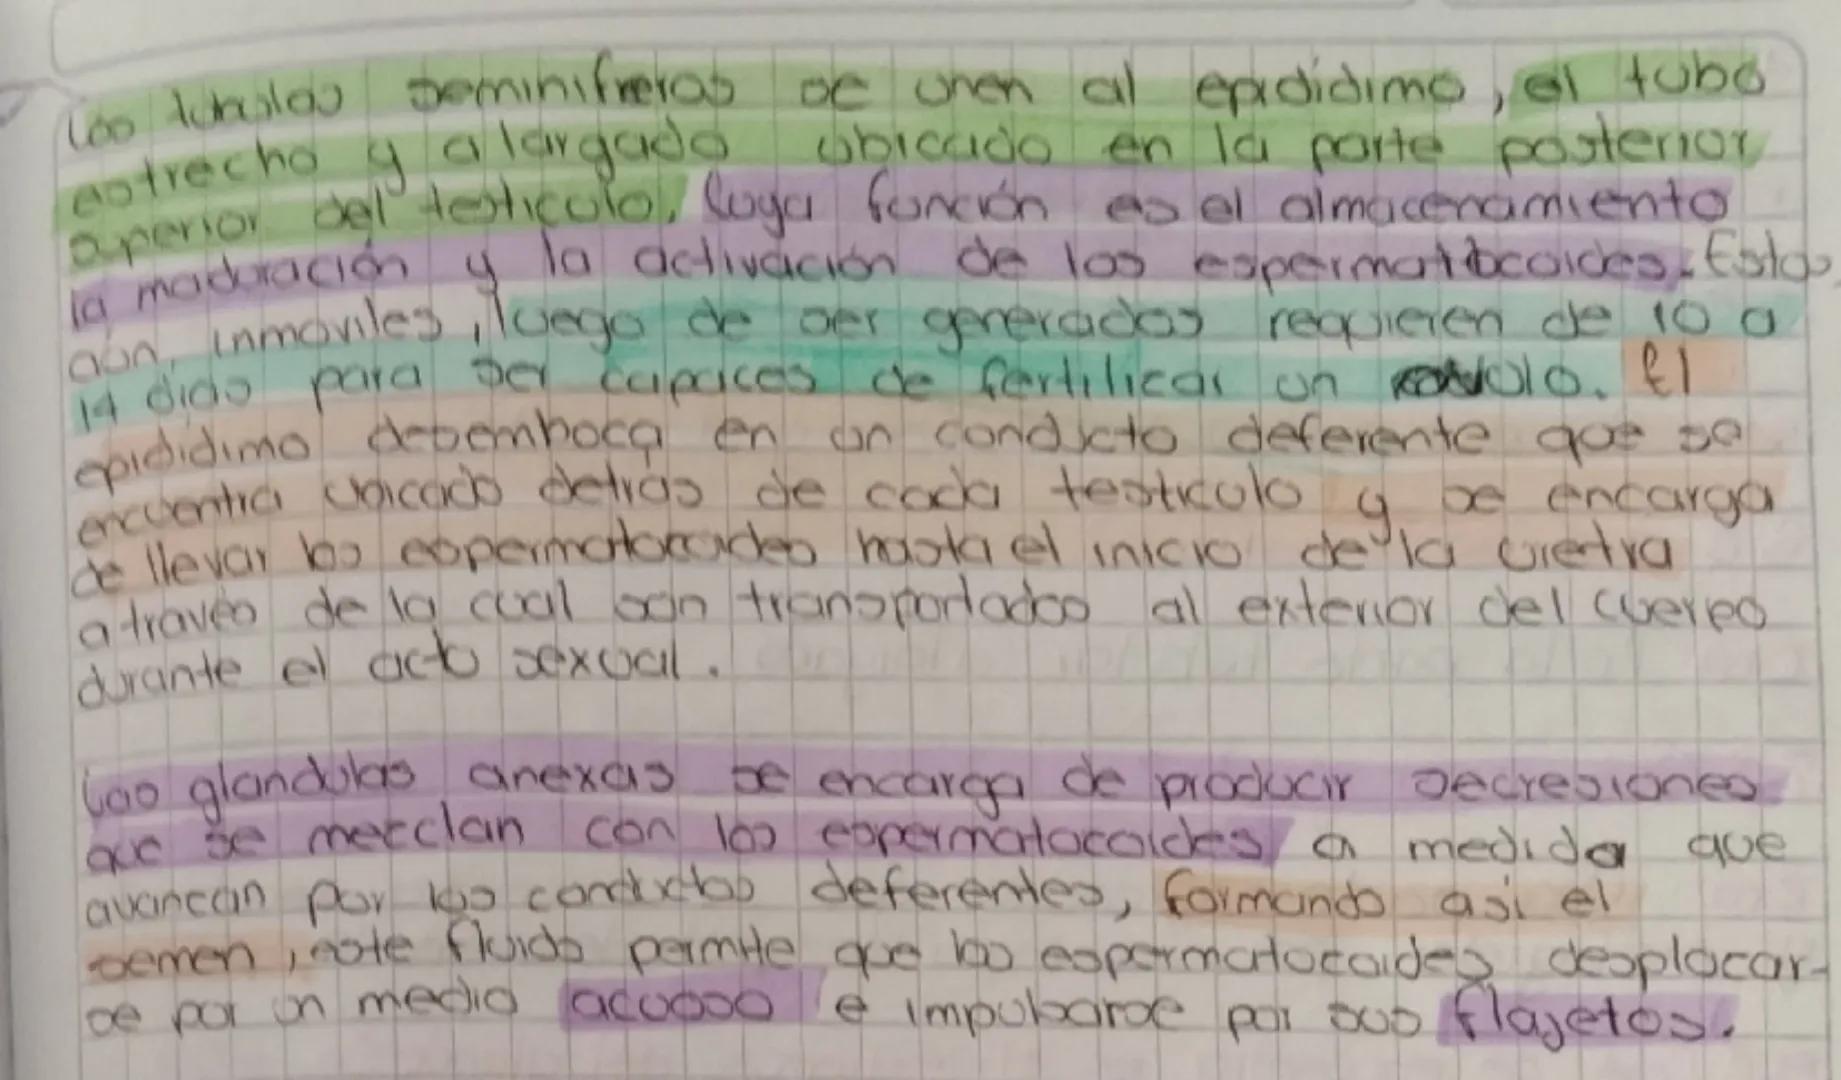 Los tubulos seminifreros se unen al epididimo, el tubo
estrecho y alargado ubicado en la parte posterior
superior del testiculo, cuya función es el almacenamiento
la maduración y la activación de los espermatocoides. Estos,
aún, inmoviles, luego de ser generados requieren de 10 a
14 dias para ser capaces de fertilicar un ovulo. El
epididimo desemboca en un conducto deferente que se
encuentra ubicado detras de cada testiculo y se encarga
de llevar los espermatocoides hasta el inicio de la uretra
a través de la cual son transportados al exterior del cuerpo
durante el acto sexual.
Las glandulas anexas se encarga de producir secresiones
que se mecclan con los espermatocoides a medida que
avancan por los conductos deferentes, formando asi el
semen, este fluido permite que los espermatocoides desplacar-
se por un medio acuoso e impulsarse por sus flajetos.